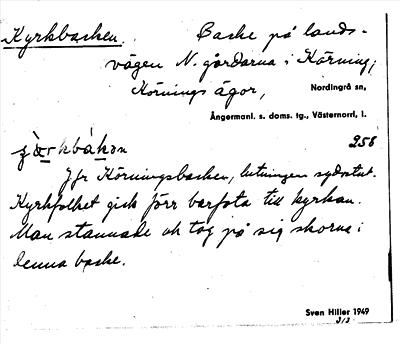 Kyrkbacken. Backe på lands-
vägen N. gårdarna i Körning,
Körnings ägor, Nordingrå sn,
Ångermanl. s. doms. tg., Västernorrl, l.
256
Jfr Körningsbacken, lutningen sydostut.
Kyrkfolket gick förr barfota till kyrkan.
Man stannade och tog på sig skorna i
denna backe.
Sven Hiller 1949
313